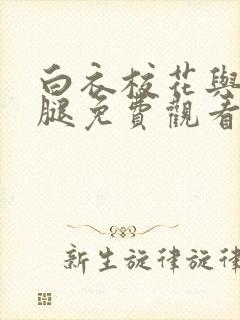 白衣校花與
腿免費觀看
新生旋律旋律